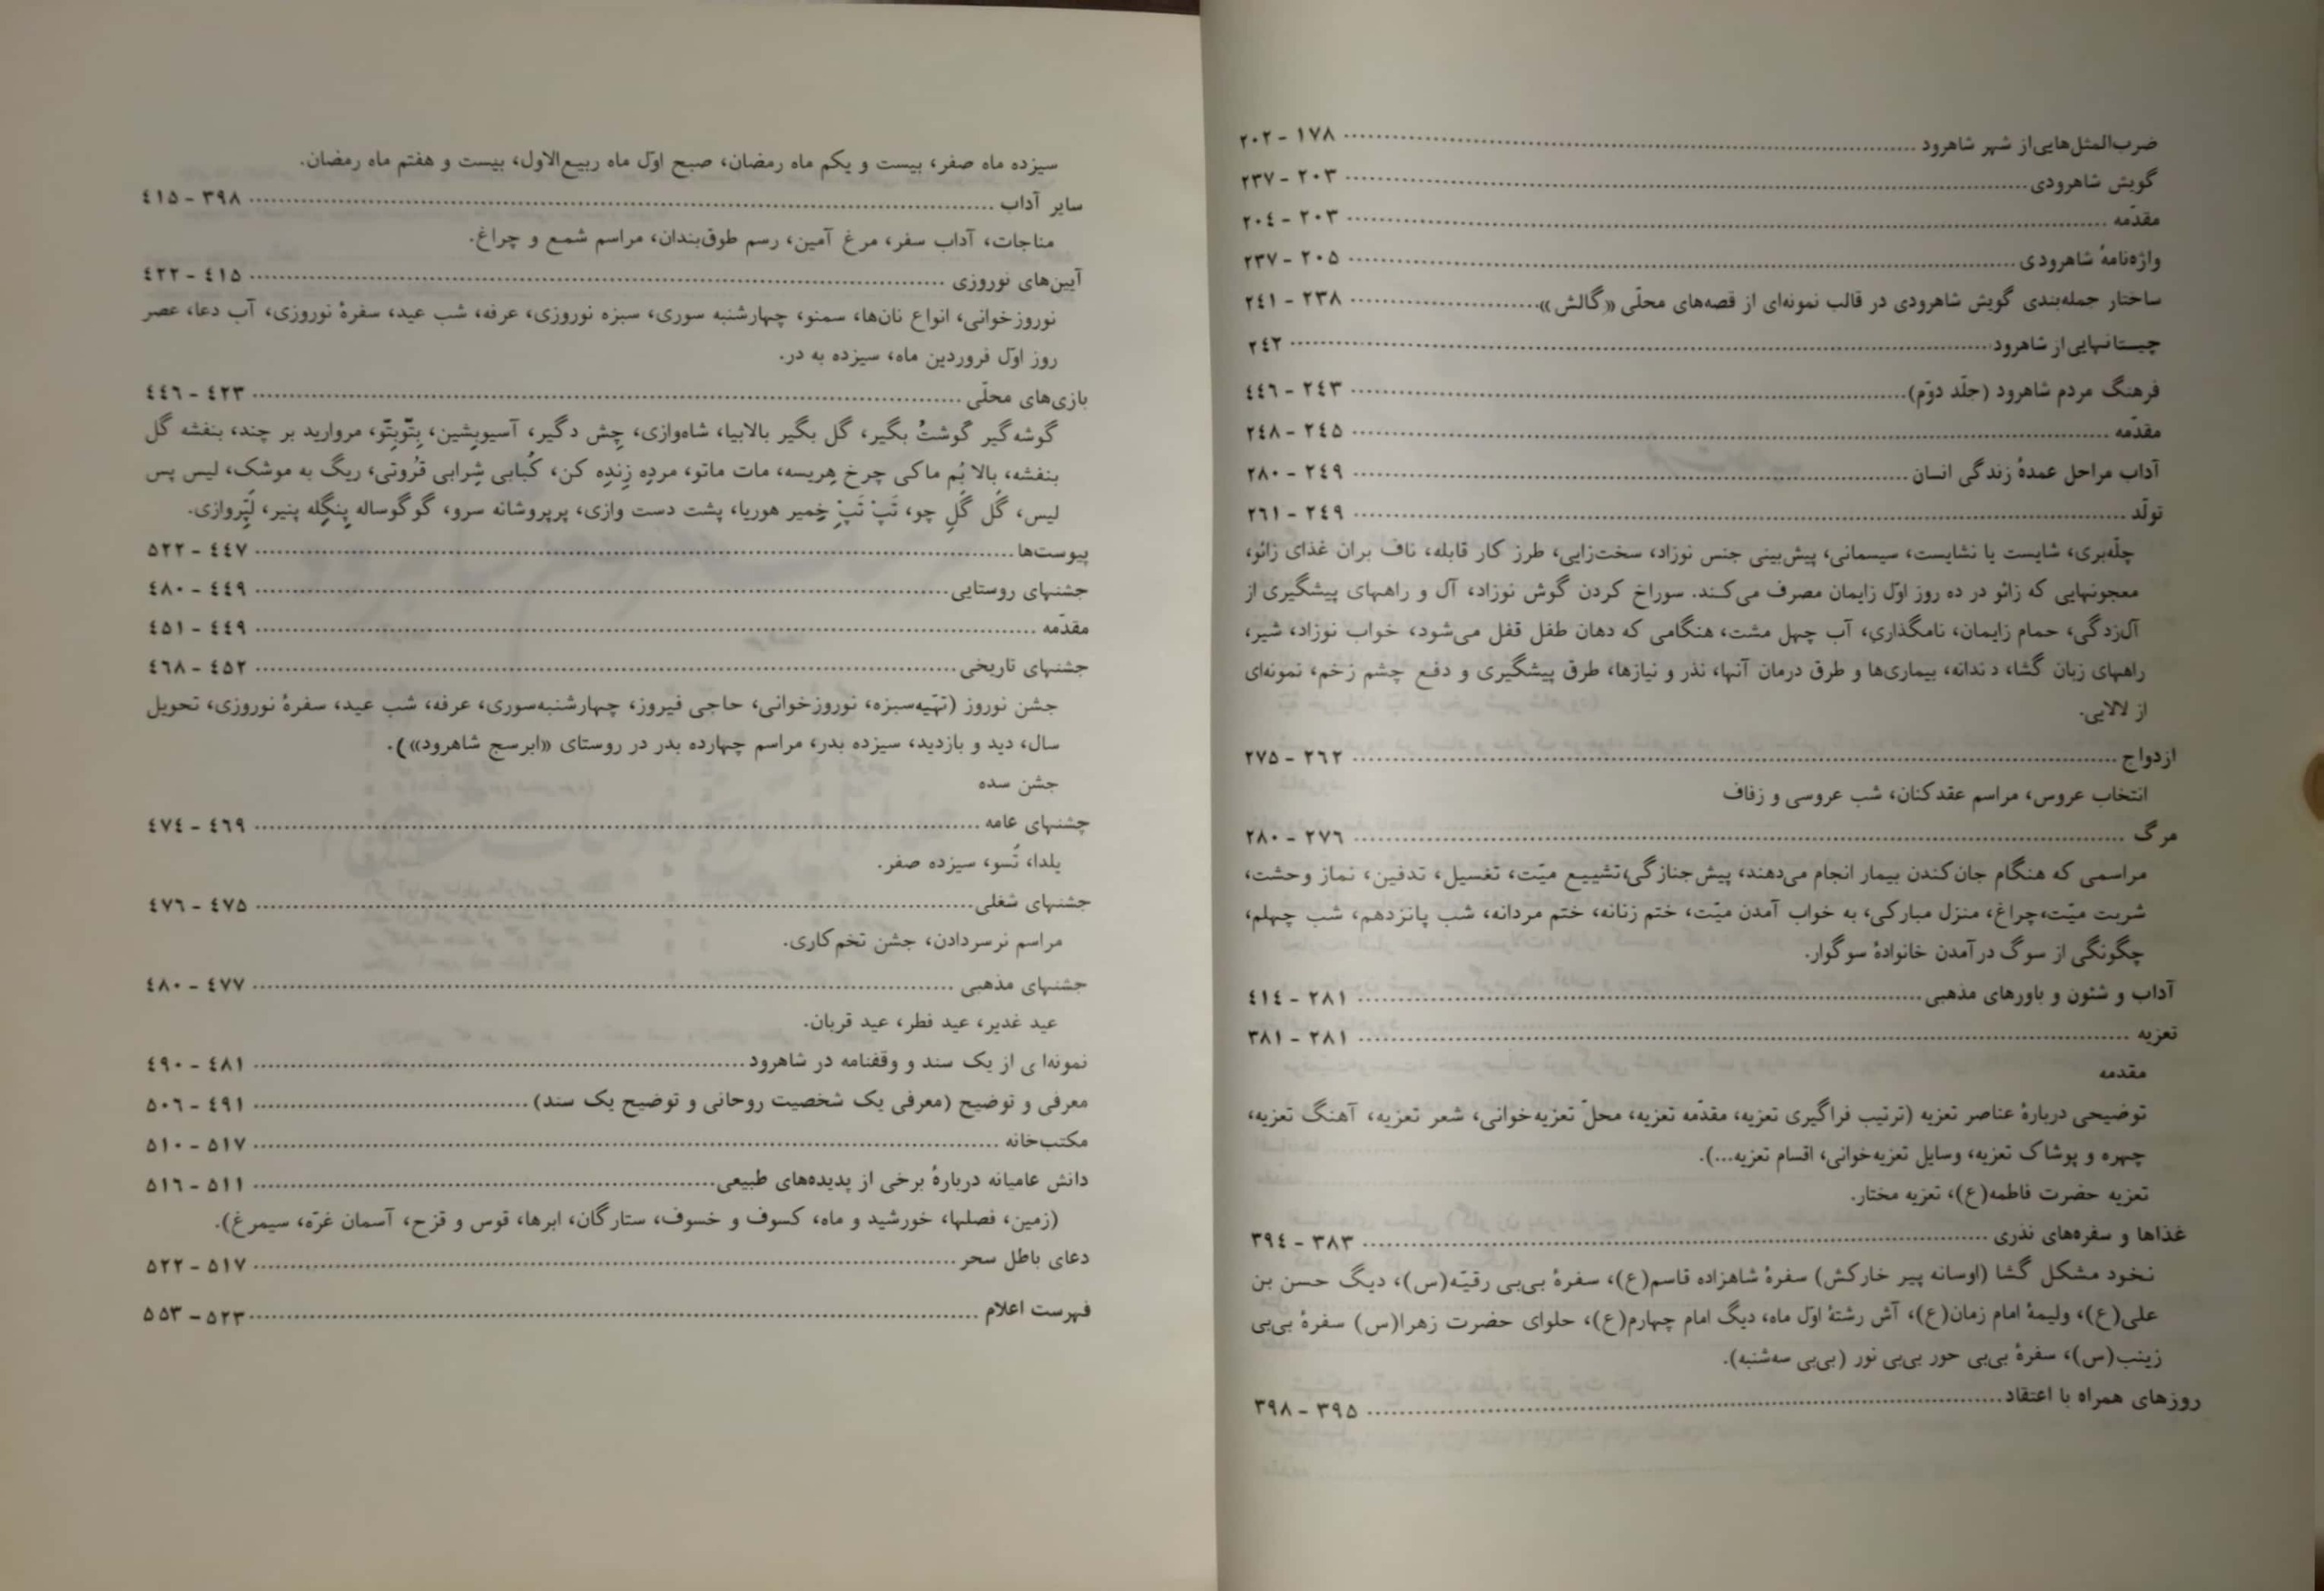 ضرب‌المثل‌هایی‌از شهر شاهرود ........ ۱۷۸ - ۲۰۲
گویش شاهرودی ........ ۲۰۳ - ۲۳۷
مقدّمه ........ ۲۰۳ - ۲۰٤
واژه‌نامهٔ شاهرودی ........ ۲۰۵ - ۲۳۷
ساختار جمله‌بندی گویش شاهرودی در قالب نمونه‌ای از قصه‌های محلّی «گالش» ........ ۲۳۸ - ۲٤۱
چیستانهایی‌از شاهرود ........ ۲٤۲
فرهنگ مردم شاهرود (جلّد دوّم) ........ ۲٤۳ - ٤٤٦
مقدّمه ........ ۲٤۵ - ۲٤۸
آداب مراحل عمدهٔ زندگی انسان ........ ۲٤۹ - ۲۸۰
تولّد ........ ۲٤۹ - ۲٦۱
چلّه‌بری، شایست یا نشایست، سیسمانی، پیش‌بینی جنس نوزاد، سخت‌زایی، طرز کار قابله، ناف بران غذای زائو،
معجونهایی که زائو در ده روز اوّل زایمان مصرف می‌کـند. سوراخ کردن گوش نوزاد، آل و راههای پیشگیری از
آل‌زدگی، حمام زایمان، نامگذاری، آب چهل مشت، هنگامی که دهان طفل قفل می‌شود، خواب نوزاد، شیر،
راههای زبان گشا، دندانه، بیماری‌ها و طرق درمان آنها، نذر و نیازها، طرق پیشگیری و دفـع چشم زخم، نمونه‌ای
از لالایی.
ازدواج ........ ۲٦۲ - ۲۷۵
انتخاب عروس، مراسم عقدکنان، شب عروسی و زفاف
مرگ ........ ۲۷٦ - ۲۸۰
مراسمی که هنگام جان‌کندن بیمار انجام می‌دهند، پیش‌جنازگی،تشییع میّت، تغسیل، تدفین، نماز وحشت،
شربت میّت،چراغ، منزل مبارکی، به خواب آمدن میّت، ختم زنانه، ختم مردانه، شب پانزدهم، شب چهلم،
چگونگی از سوگ درآمدن خانوادهٔ سوگوار.
آداب و شئون و باورهای مذهبی ........ ۲۸۱ - ٤۱٤
تعزیه ........ ۲۸۱ - ۳۸۱
مقدمه
توضیحی دربارهٔ عناصر تعزیه (ترتیب فراگیری تعزیه، مقدّمه تعزیه، محلّ تعزیه‌خوانی، شعر تعزیه، آهنگ تعزیه،
چهره و پوشاک تعزیه، وسایل تعزیه‌خوانی، اقسام تعزیه...).
تعزیه حضرت فاطمه(ع)، تعزیه مختار.
غذاها و سفره‌های نذری ........ ۳۸۳ - ۳۹٤
نخود مشکل گشا (اوسانه پیر خارکش) سفرهٔ شاهزاده قاسم(ع)، سفرهٔ بی‌بی رقیّه(س)، دیگ حسن بن
علی(ع)، ولیمهٔ امام زمان(ع)، آش رشتهٔ اوّل ماه، دیگ امام چهارم(ع)، حلوای حضرت زهرا(س) سفرهٔ بی‌بی
زینب(س)، سفرهٔ بی‌بی حور بی‌بی نور (بی‌بی سه‌شنبه).
روزهای همراه با اعتقاد ........ ۳۹۵ - ۳۹۸
سیزده ماه صفر، بیست و یکم ماه رمضان، صبح اوّل ماه ربیع‌الاول، بیست و هفتم ماه رمضان.
سایر آداب ........ ۳۹۸ - ٤۱۵
مناجات، آداب سفر، مرغ آمین، رسم طوق‌بندان، مراسم شمـع و چراغ.
آیین‌های نوروزی ........ ٤۱۵ - ٤۲۲
نوروزخوانی، انواع نان‌ها، سمنو، چهارشنبه سوری، سبزه نوروزی، عرفه، شب عید، سفرهٔ نوروزی، آب دعا، عصر
روز اوّل فروردین ماه، سیزده به در.
بازی‌های محلّی ........ ٤۲۳ - ٤٤٦
گوشه‌گیر گوشتُ بگیر، گل بگیر بالابیا، شاه‌وازی، چِش دگیر، آسیوبِشین، بِتّوبِتّو، مروارید بر چند، بنفشه گل
بنفشه، بالا بُم ماکی چرخ هِریسه، مات ماتو، مردِه زِندِه کن، کُبابی شِرابی قُروتی، ریگ به موشک، لیس پس
لیس، گُل گُلِ چو، تَپْ تَپْ خِمیر هوریا، پشت دست وازی، پرپروشانه سرو، گوگوساله پِنگِله پنیر، لَپَّروازی.
پیوست‌ها ........ ٤٤۷ - ۵۲۲
جشنهای روستایی ........ ٤٤۹ - ٤۸۰
مقدّمه ........ ٤٤۹ - ٤۵۱
جشنهای تاریخی ........ ٤۵۲ - ٤٦۸
جشن نوروز (تهیّه‌سبزه، نوروزخوانی، حاجی فیروز، چهارشنبه‌سوری، عرفه، شب عید، سفرهٔ نوروزی، تحویل
سال، دید و بازدید، سیزده بدر، مراسم چهارده بدر در روستای «ابرسج شاهرود»).
جشن سده
جشنهای عامه ........ ٤٦۹ - ٤۷٤
یلدا، تَسو، سیزده صفر.
جشنهای شغلی ........ ٤۷۵ - ٤۷٦
مراسم نرسردادن، جشن تخم‌کاری.
جشنهای مذهبی ........ ٤۷۷ - ٤۸۰
عید غدیر، عید فطر، عید قربان.
نمونه‌ای از یک سند و وقفنامه در شاهرود ........ ٤۸۱ - ٤۹۰
معرفی و توضیح (معرفی یک شخصیت روحانی و توضیح یک سند) ........ ٤۹۱ - ۵۰٦
مکتب‌خانه ........ ۵۱۷ - ۵۱۰
دانش عامیانه دربارهٔ برخی از پدیده‌های طبیعی ........ ۵۱۱ - ۵۱٦
(زمین، فصلها، خورشید و ماه، کسوف و خسوف، ستارگان، ابرها، قوس و قزح، آسمان غرّه، سیمرغ).
دعای باطل سحر ........ ۵۱۷ - ۵۲۲
فهرست اعلام ........ ۵۲۳ - ۵۵۳